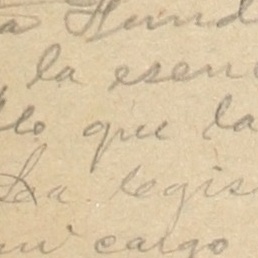 la esen
lo que la
La legis
mi cargo